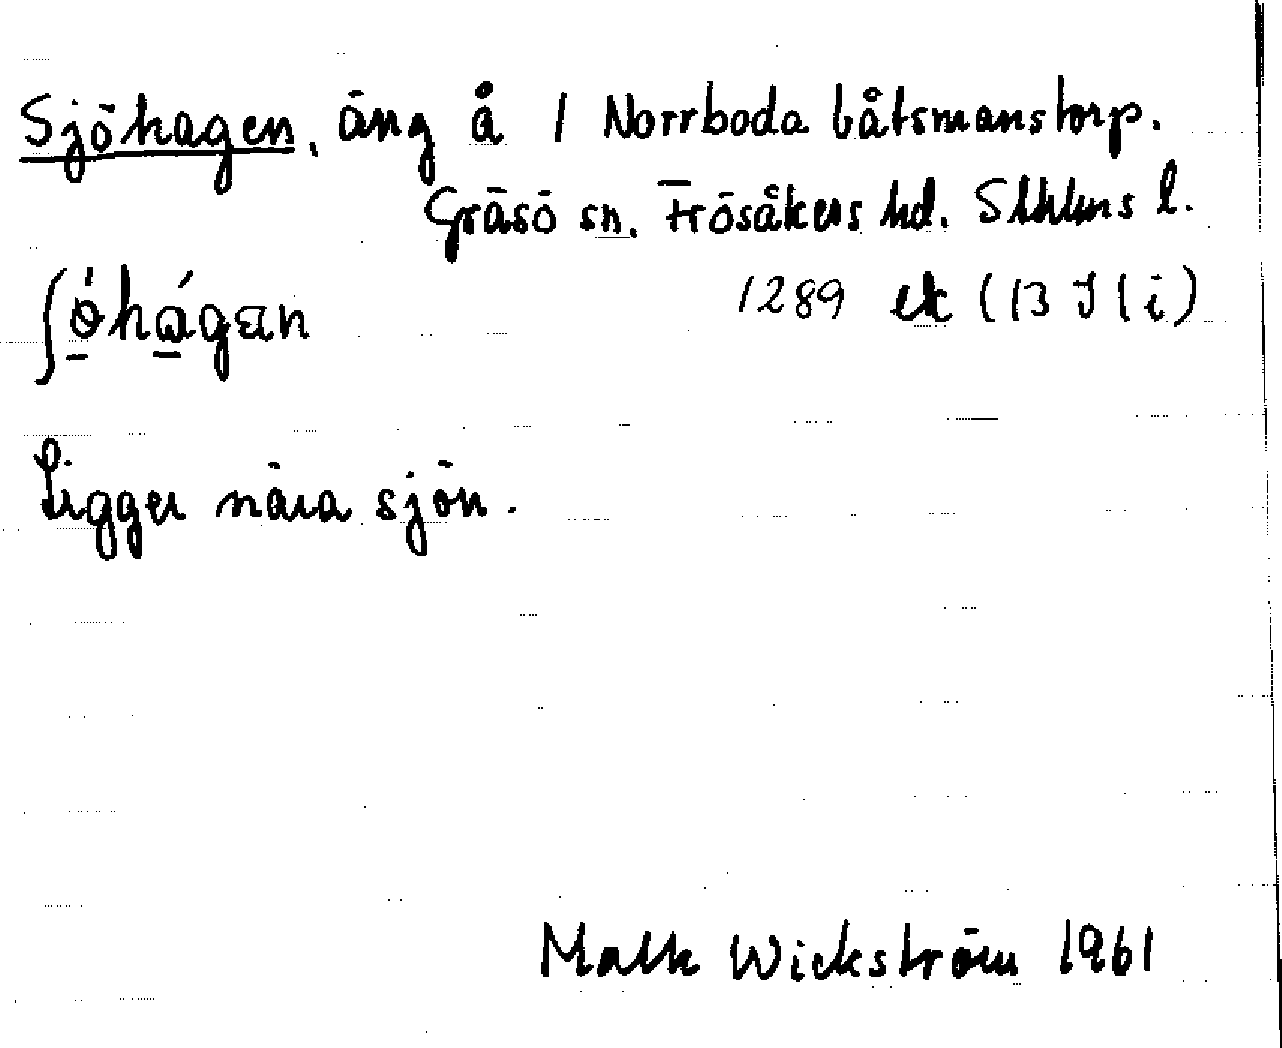 Sjöhagen, äng å 1 Norrboda båtsmanstorp.
Gräsö sn. Frösåkers hd. Sthlms l.
ʃǿhágan
1289 ek (13 I 1 i)
Ligger nära sjön.
Wickström 1961